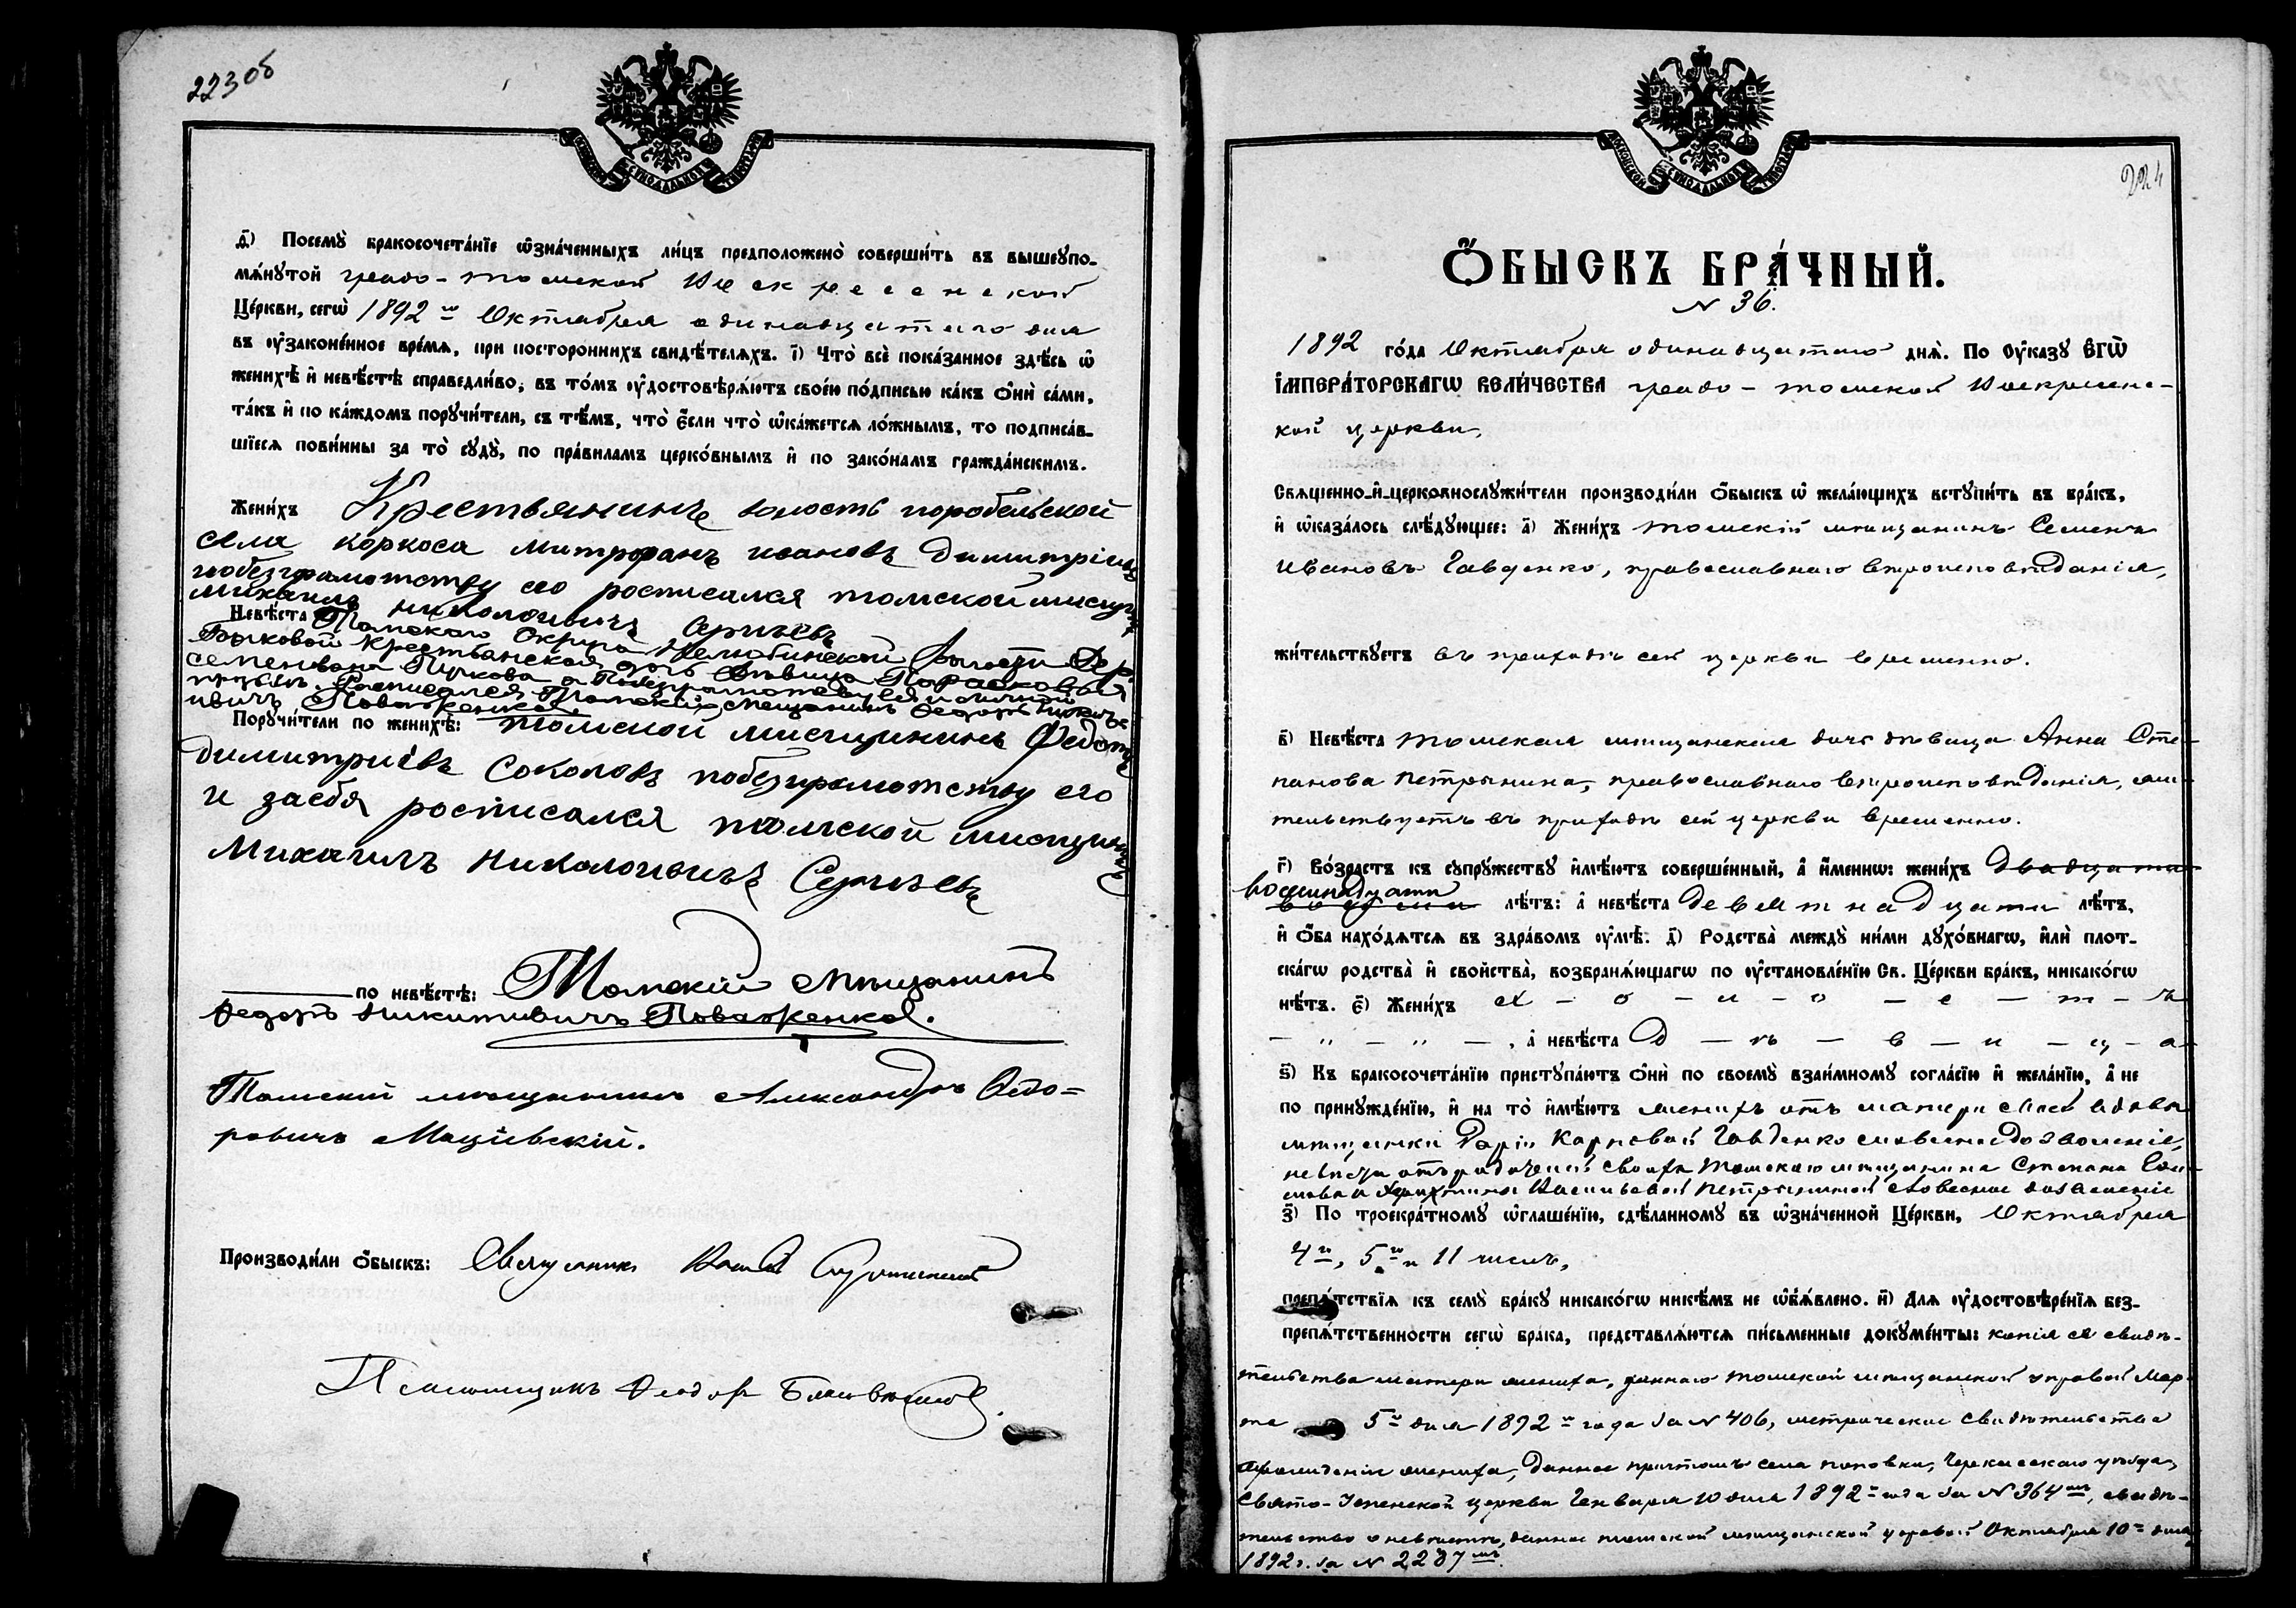 223об
СѴНОДАЛЬНОЙ
д҃) Посемꙋ̀ бракосочета́нїе ѡ҆зна́ченныхъ ли́цъ предположено̀ соверши́ть въ вышеꙋпо-
мѧ́нꙋтой градо-Томской Воскресенской
Це́ркви, сегѡ̀ 1892 го Октября одинадцатаго дня
въ ᲂу҆законе́нное вре́мѧ, при посторо́ннихъ свидѣ́телѧхъ. і҃) Что̀ всѐ пока́занное здѣ́сь ѡ҆
женихѣ̀ и҆ невѣ́стѣ справедли́во, въ то́мъ ᲂу҆достовѣрѧ́ютъ свое́ю по́дписью ка́къ ѻ҆нѝ са́ми,
та́къ и҆ по ка́ждомъ порꙋчи́тели, съ тѣ́мъ, что̀ є҆́сли что̀ ѡ҆ка́жетсѧ ло́жнымъ, то подписа́в-
шїесѧ пови́нны за то̀ сꙋдꙋ̀, по пра́виламъ церко́внымъ и҆ по зако́намъ гражда́нскимъ.
Жени́хъ Крестьянинъ волость поробельской
села коркоса митрофанъ ивановъ димитріевъ
побезграмотству его росписался томской мисчу
Михаилъ николоивичъ Сергѣевъ
Невѣ́ста Томскаго Округа Нелюбинской Волости Дер
Быковой крестьянская дочь Дѣвица Парасковья
семеновна Пучкова а Побезграмотству ея и личной
прозьбѣ Росписался Томскій мещанинъ Федотъ Никит
ивичъ Поваженко
Порꙋчи́тели по жени́хѣ: томской мисчинин Федотъ
димитриевъ Соколовъ побезграмотству его
и засебя росписался томской мисчин
Михаилъ николоивичъ Сергѣевъ
по невѣ́стѣ: Томскій Мѣщанинъ
Федотъ Никитивичъ Поваженко.
Томский мещанинъ Александръ Ѳедо=
ровичъ Маціевскій.
Производи́ли ѻ҆́быскъ: Священникъ
Псаломщикъ Ѳеодоръ
224
СѴНОДАЛЬНОЙ
Ѻ҆БЫСКЪ БРА́ЧНЫЙ.
N 36.
1892 го́да Октября одинадцатаго днѧ̀. По ᲂу҆ка́зꙋ Є҆ГѠ̀
І҆МПЕРА́ТОРСКАГѠ ВЕЛИ́ЧЕСТВА градо-Томской Воскресенс-
кой церкви,
Свѧще́нно-и҆-церковнослꙋжи́тели производи́ли ѻ҆́быскъ ѡ҆ жела́ющихъ встꙋпи́ть въ бра́къ,
и҆ ѡ҆каза́лось слѣ́дꙋющее: а҃) Жени́хъ томскій мѣщанинъ Семенъ
Ивановъ Гавденко, православнаго вѣроисповѣданія,
жи́тельствꙋетъ въ приходѣ сей церкви временно.
в҃) Невѣ́ста томская мѣщанская дочь дѣвица Анна Сте-
панова Петрынина, православнаго вѣроисповѣданія, жи-
тельствуетъ въ приходѣ сей церкви временно.
г҃) Во́зрастъ къ сꙋпрꙋ́жествꙋ и҆мѣ́ютъ соверше́нный, а҆ и҆́менно: жени́хъ двадцати
восминадцати
лѣ́тъ: а҆ невѣ́ста девятнадцати лѣ́тъ,
и҆ ѻ҆́ба нахо́дѧтсѧ въ здра́вомъ ᲂу҆мѣ̀. д҃) Родства̀ междꙋ̀ ни́ми дꙋхо́внагѡ, и҆лѝ пло́т-
скагѡ родства̀ и҆ свойства̀, возбранѧ́ющагѡ по ᲂу҆становле́нїю Св. Це́ркви бра́къ, никако́гѡ
нѣ́тъ. є҃) Жени́хъ х - о - л - о - с - т - ъ
- " - " - , а҆ невѣ́ста д - ѣ - в - и - ц - а
ѕ҃) Къ бракосочета́нїю пристꙋпа́ютъ ѻ҆нѝ по своемꙋ̀ взаи́мномꙋ согла́сїю и҆ жела́нїю, а҆ не
по принꙋжде́нїю, и҆ на то̀ и҆мѣ́ютъ женихъ отъ матери своей вдовы
мѣщанки Даріи Карповой Гавденко словесное дозволеніе,
невѣста отъ родителей своихъ томскаго мѣщанина Степана
и Христины Васильевой Петрыниной словесное дозволеніе
з҃) По троекра́тномꙋ ѡ҆глаше́нїю, сдѣ́ланномꙋ въ ѡ҆зна́ченной Це́ркви, Октября
4 го, 5 го и 11 числъ,
препѧ́тствїѧ къ семꙋ̀ бра́кꙋ никако́гѡ никѣ́мъ не ѡ҆б̾ѧ́влено. и҃) Длѧ ᲂу҆достовѣре́нїѧ без-
препѧ́тственности сегѡ̀ бра́ка, представлѧ́ютсѧ пи́сьменные докꙋме́нты: копія съ свидѣ-
тельства матери жениха, даннаго томской мѣщанской управой Мар-
та 5 го дня 1892 го года за N 406, метрическое свидѣтельство
о рожденіи жениха, данное причтомъ села поповки, Черкасскаго уѣзда,
Свято-Успенской церкви Генваря 10 дня 1892 года за N 364 мъ, свидѣ-
тельство о невѣстѣ, данное томской мѣщанской управой Октября 10 го дня
1892 г. за N 2287 мъ.